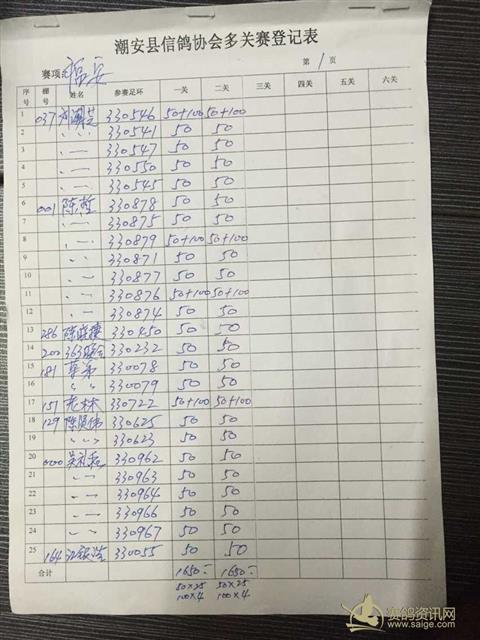 潮安县信鸽协会多关赛登记表
赛项: 福安 第 1 页
序号 棚号 姓名 参赛足环 一关 二关 三关 四关 五关 六关
1 037 330546 50+100 50+100
2 〃 〃 330541 50 50
3 〃 — 330547 50 50
4 〃 — 330550 50 50
5 〃 — 330545 50 50
6 001 陈哲 330878 50 50
7 〃 — 330875 50 50
8 〃 — 330879 50+100 50+100
9 〃 — 330871 50 50
10 〃 — 330877 50 50
11 〃 — 330876 50+100 50+100
12 〃 — 330874 50 50
13 286 陈 330450 50 50
14 200 363联合 330232 50 50
15 181 330078 50 50
16 〃 〃 330079 50 50
17 151 林 330722 50+100 50+100
18 129 陈贤伟 330625 50 50
19 〃 〃 330623 50 50
20 000 吴礼 330962 50 50
21 〃 — 330963 50 50
22 〃 — 330964 50 50
23 〃 — 330966 50 50
24 〃 — 330967 50 50
25 164 江 330055 50 50
合计 1650 1650
50×25 50×25
100×4 100×4
赛鸽资讯网
www.saige.com